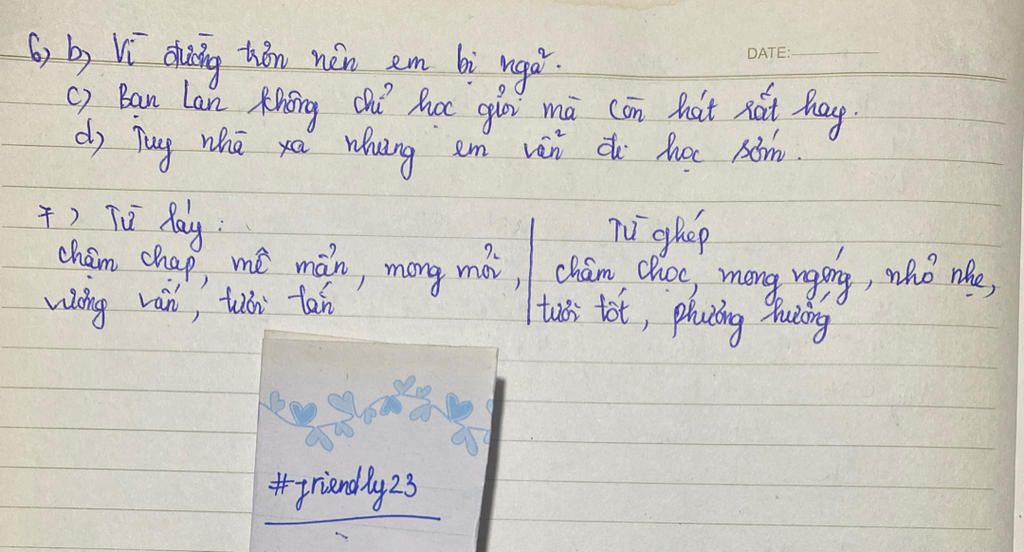 DATE:
6, b, Vì đường trơn nên em bị ngã.
c) Bạn Lan không chỉ học giỏi mà còn hát rất hay.
d) Tuy nhà xa nhưng em vẫn đi học sớm.
7) Từ láy:
chậm chạp, mê mẩn, mong mỏi,
vương vấn, tươi tắn
Từ ghép
châm chọc, mong ngóng, nhỏ nhẹ,
tươi tốt, phương hướng
#friendly23